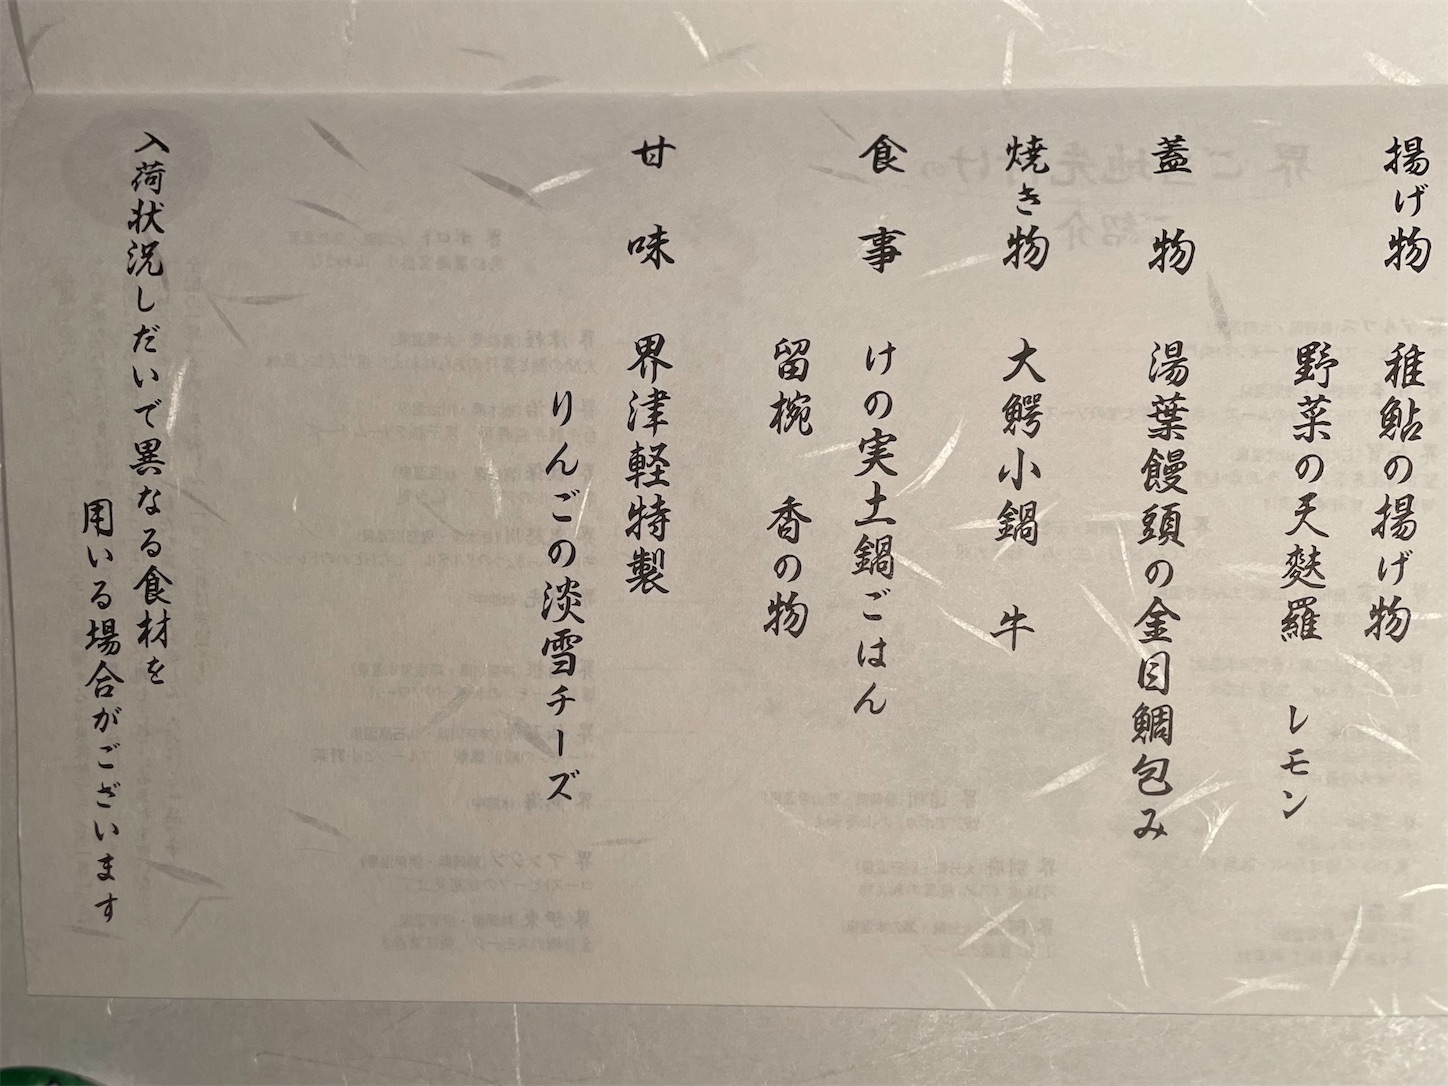 揚げ物 稚鮎の揚げ物
野菜の天麩羅 レモン
蓋物 湯葉饅頭の金目鯛包み
焼き物 大鰐小鍋 牛
食事 けの実土鍋ごはん
留椀 香の物
甘味 界津軽特製
りんごの淡雪チーズ
入荷状況しだいで異なる食材を
用いる場合がございます